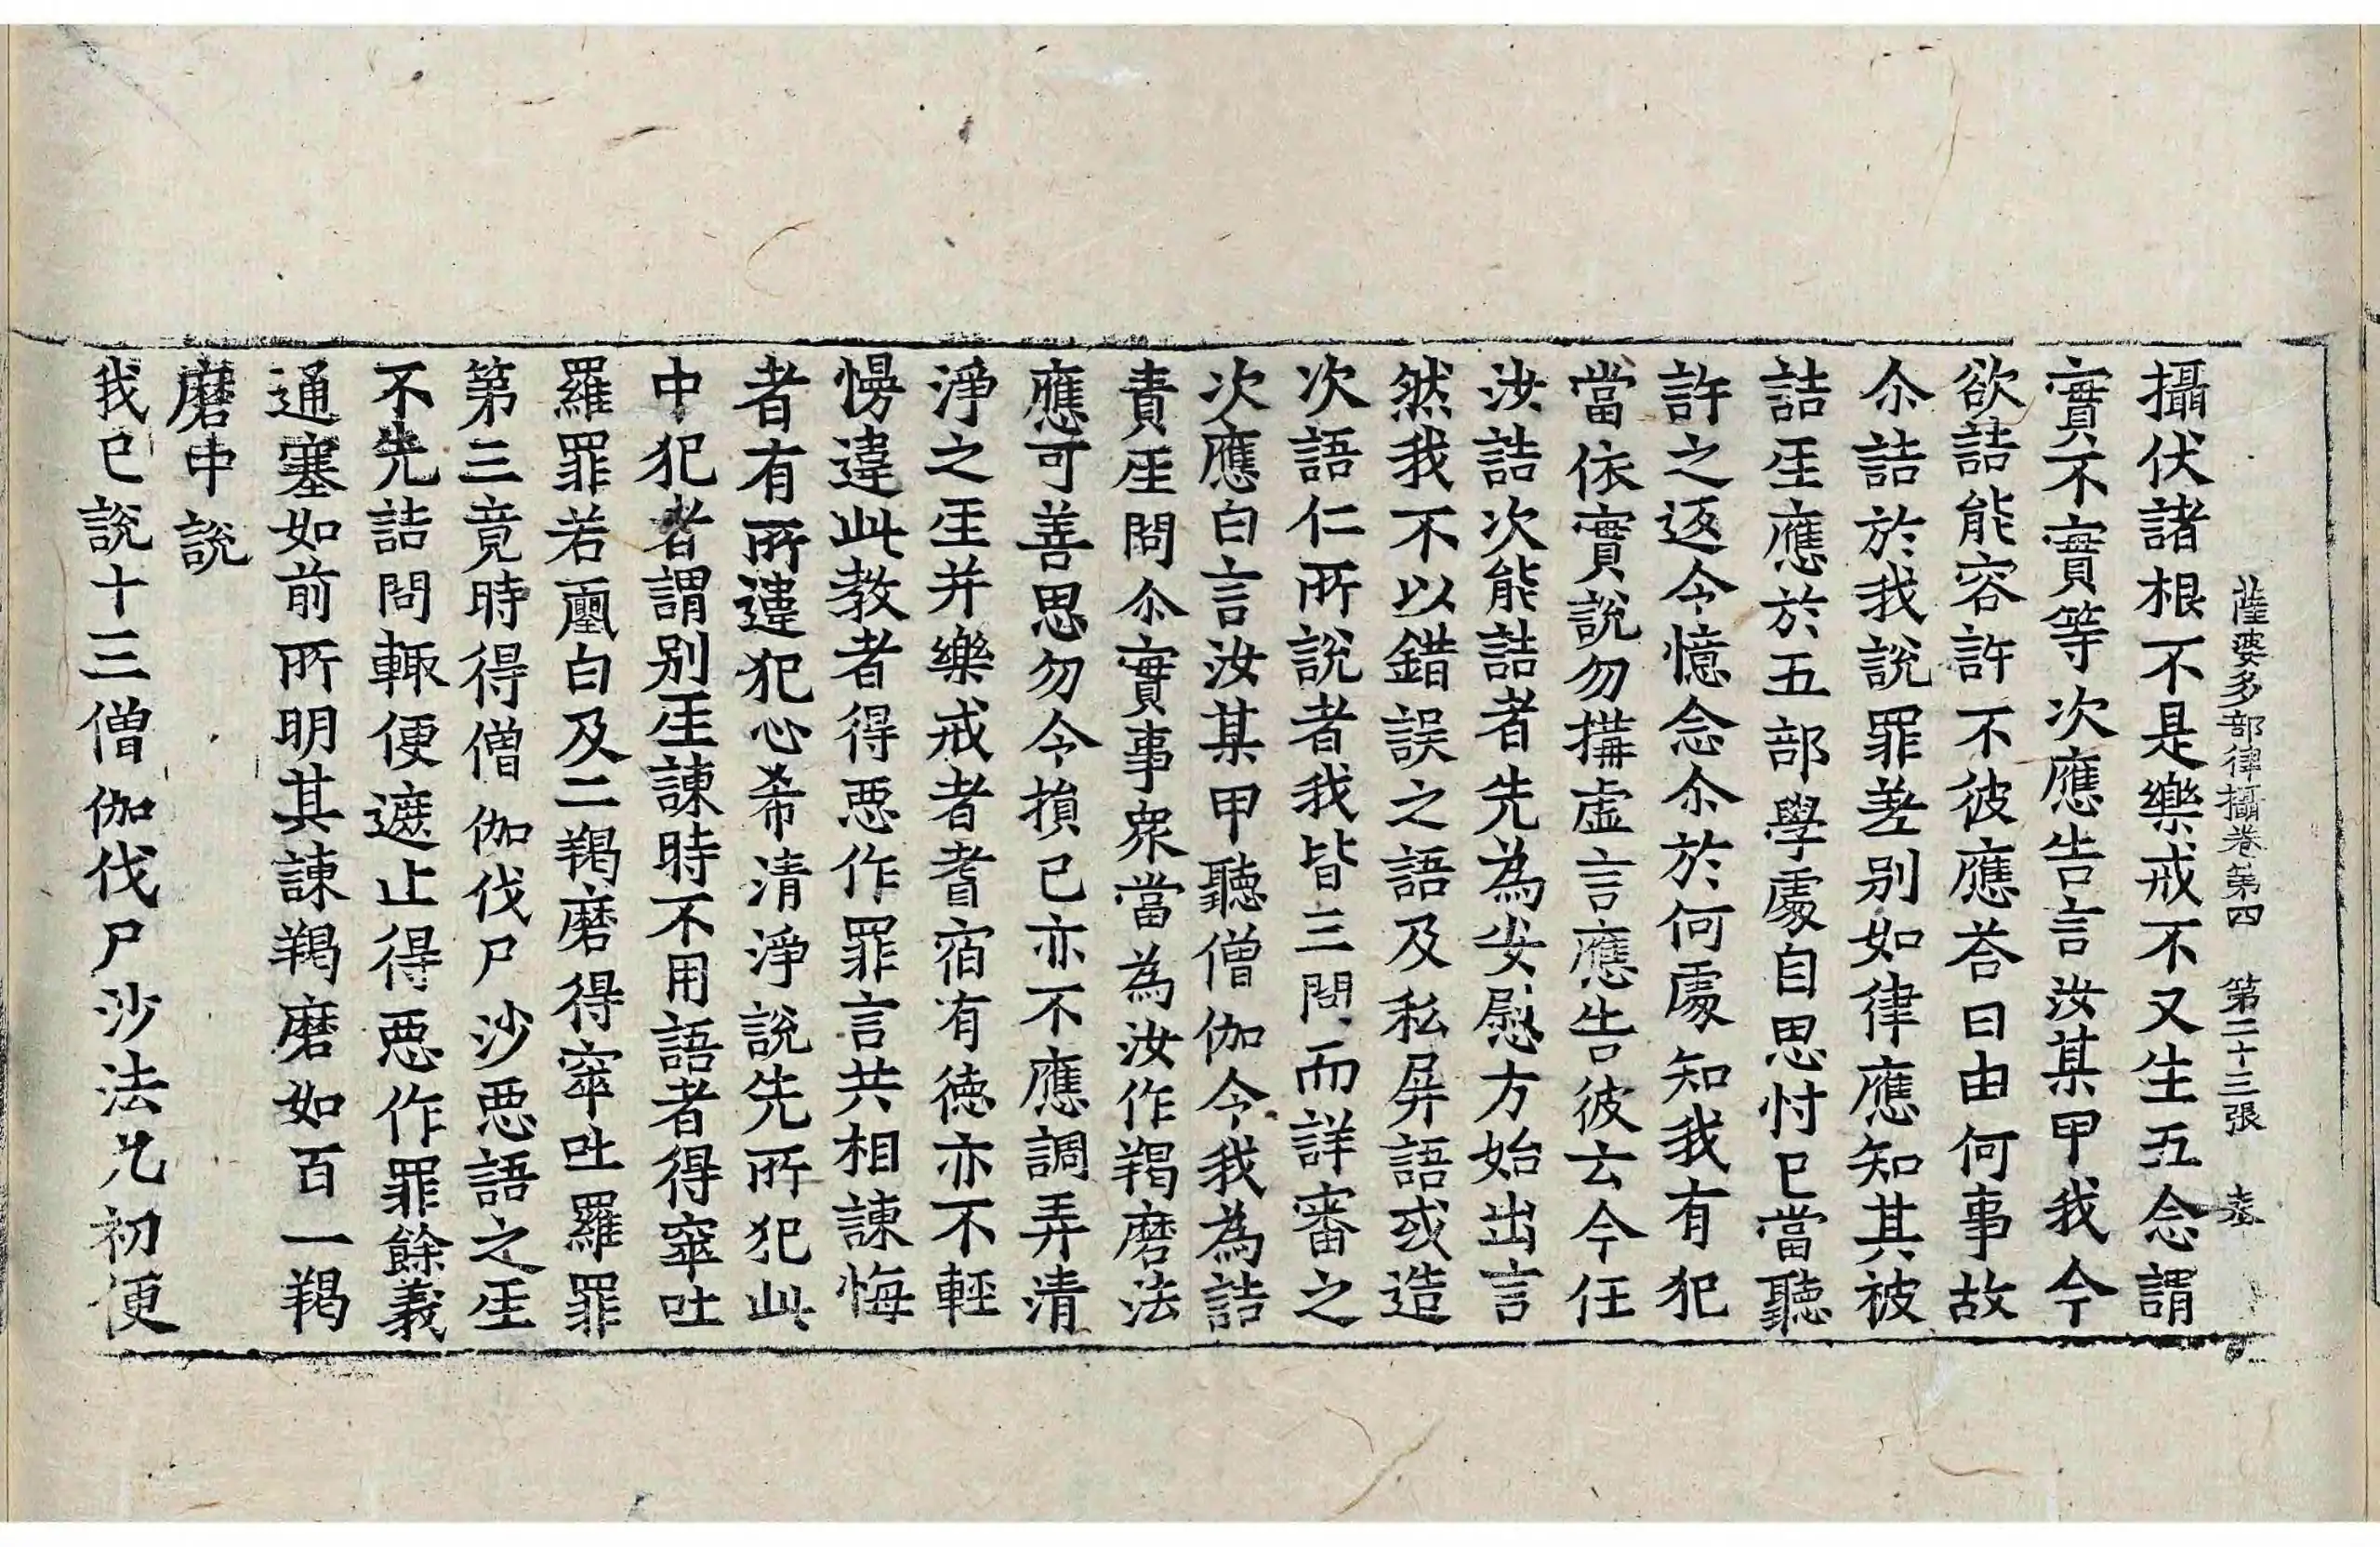 薩婆多部律攝卷第四　第二十三張
攝伏諸根不是樂戒不又生五念謂
實不實等次應告言汝某甲我今
欲詰能容許不彼應荅曰由何事故
尒詰於我說罪差別如律應知其被
詰𤯔應於五部學處自思忖已當聽
許之返今憶念尒於何處知我有犯
當依實說勿搆虛言應告彼云今任
汝詰次能詰者先為安慰方始出言
然我不以錯誤之語及私屏語或造
次語仁所說者我皆三問而詳審之
次應白言汝某甲聽僧伽今我為詰
責𤯔問尒實事衆當為汝作羯磨法
應可善思勿令損已亦不應調弄清
淨之𤯔并樂戒者耆宿有德亦不輕
慢違此教者得惡作罪言共相諫悔
者有所違犯心希清淨說先所犯此
中犯者謂別𤯔諫時不用語者得窣吐
羅罪若𤲀白及二羯磨得窣吐羅罪
第三竟時得僧伽伐尸沙惡語之𤯔
不先詰問輙便遮止得惡作罪餘義
通塞如前所明其諫羯磨如百一羯
磨中說
我已說十三僧伽伐尸沙法九初便